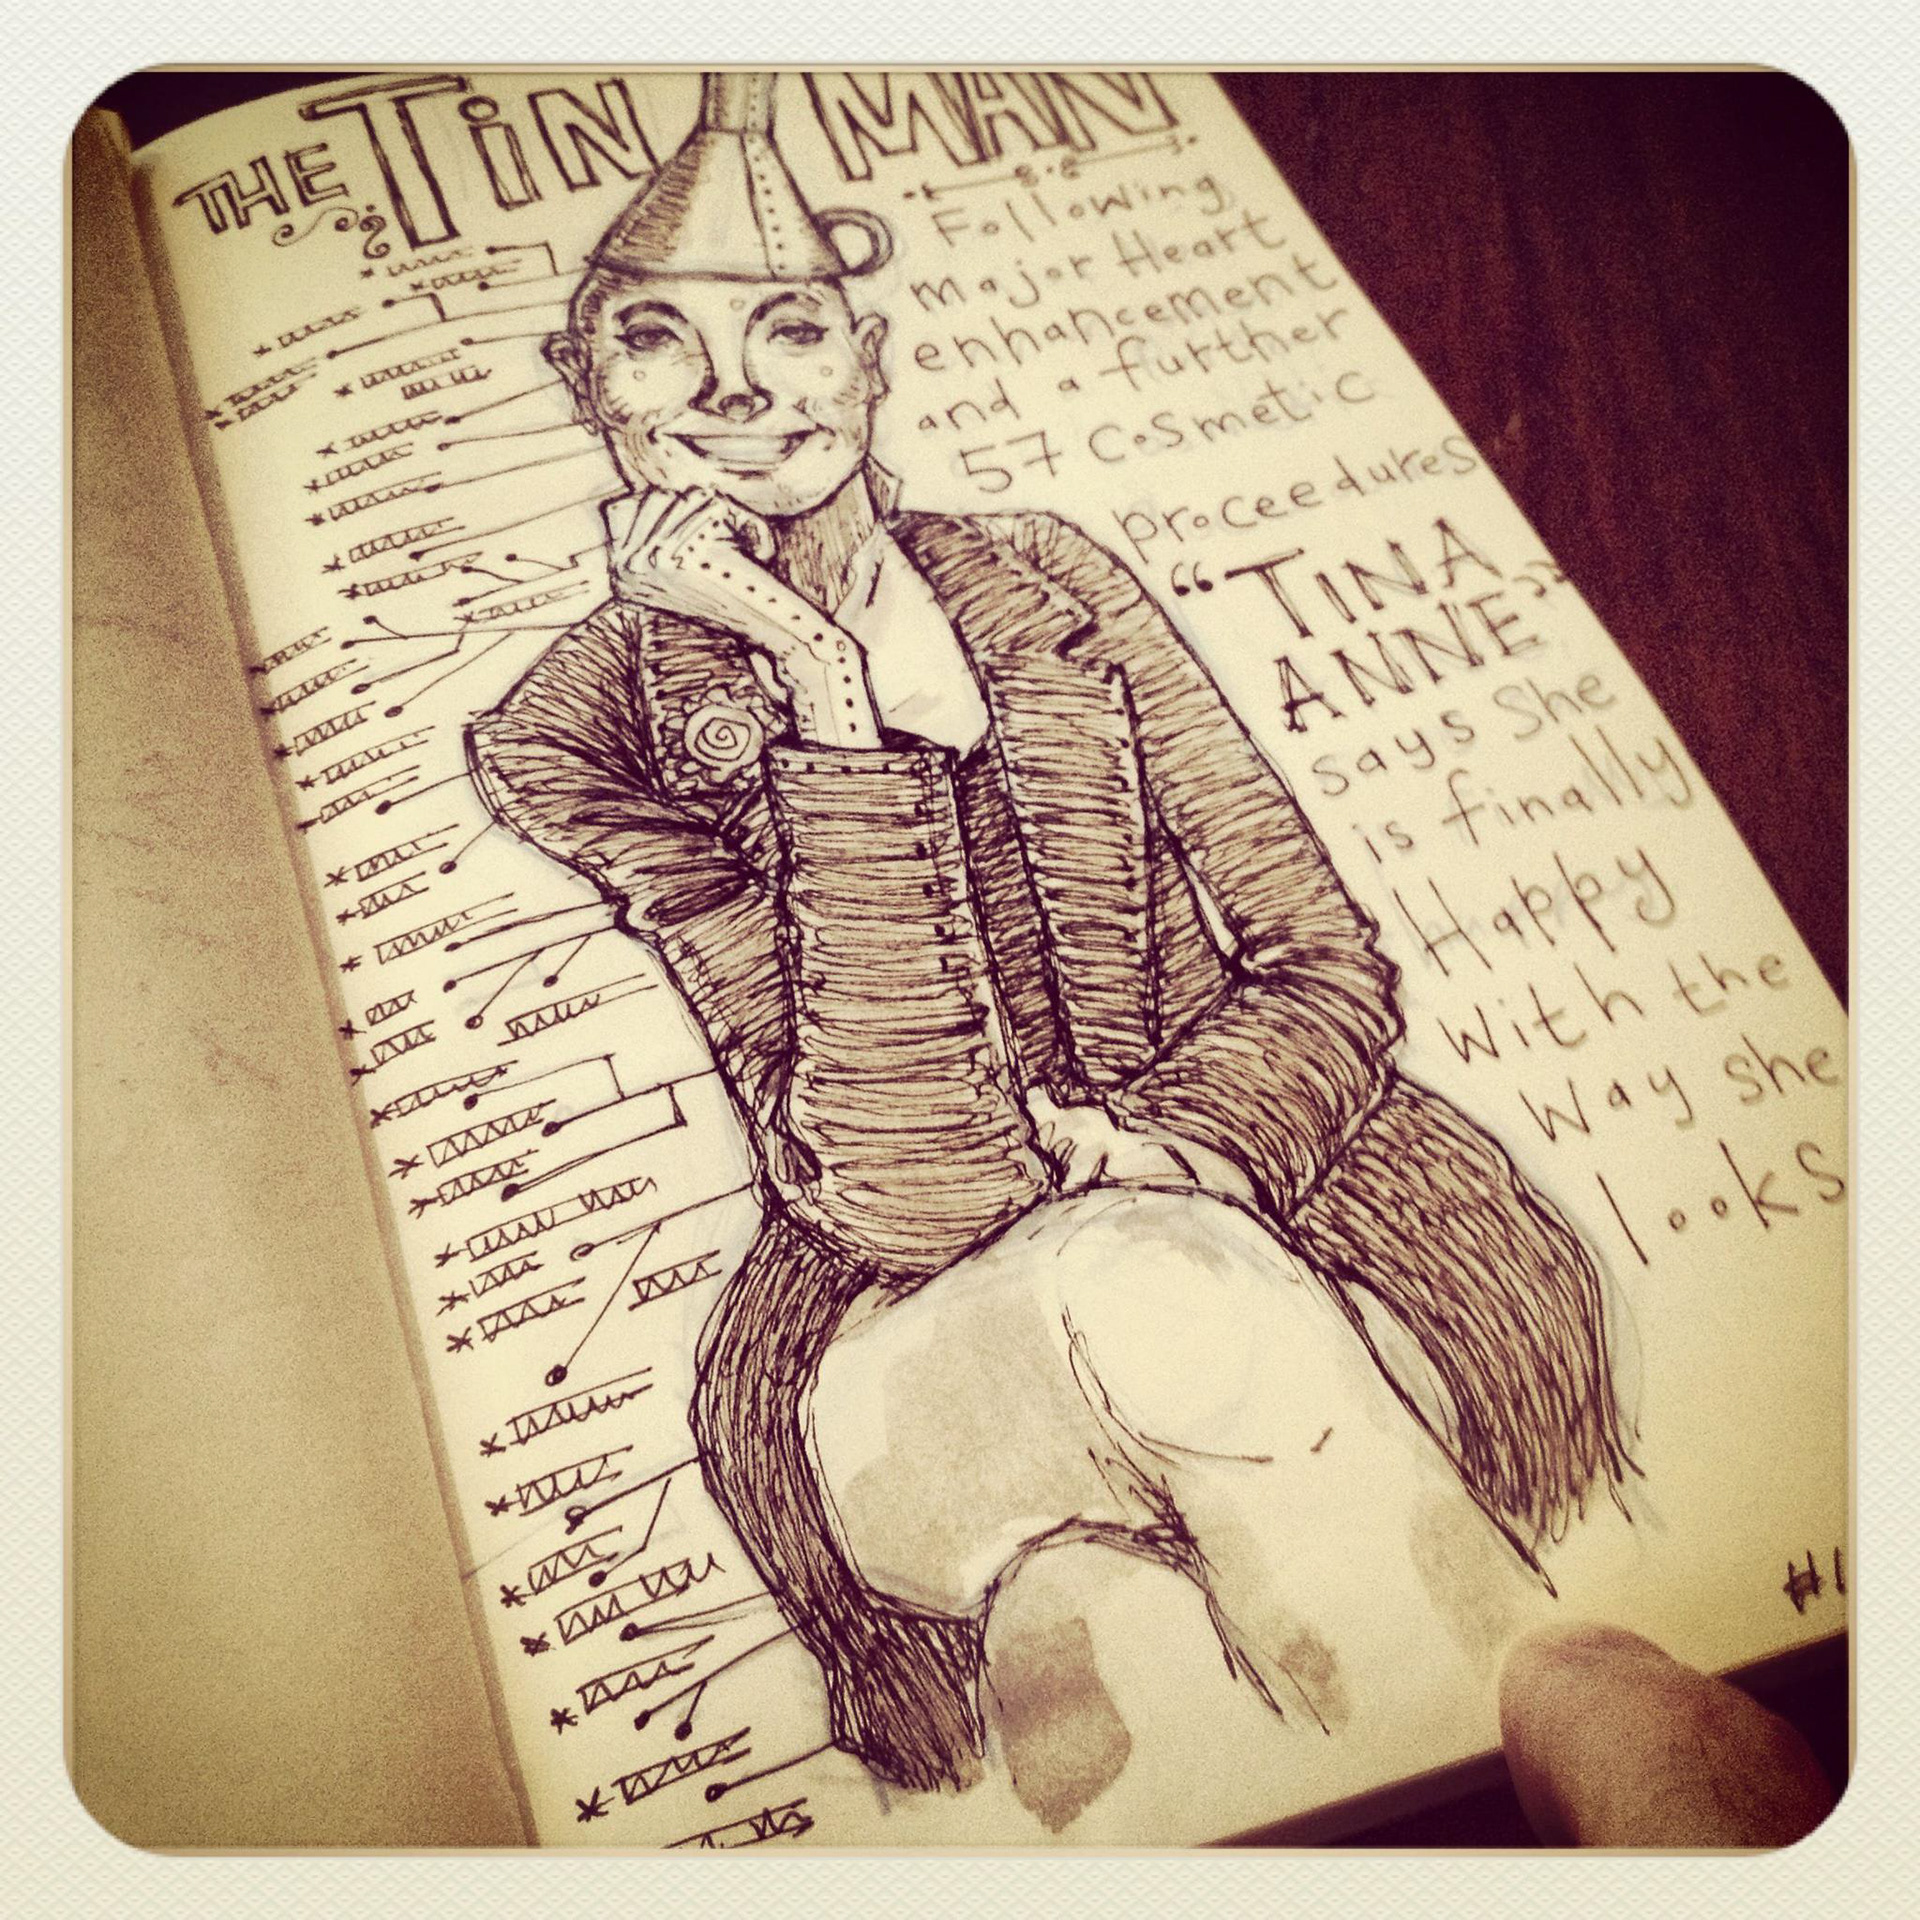 THE TiN MAN
Following
major Heart
enhancement
and a further
57 Cosmetic
proceedures
"TINA
ANNE"
says She
is finally
Happy
With the
Way She
looks
#1